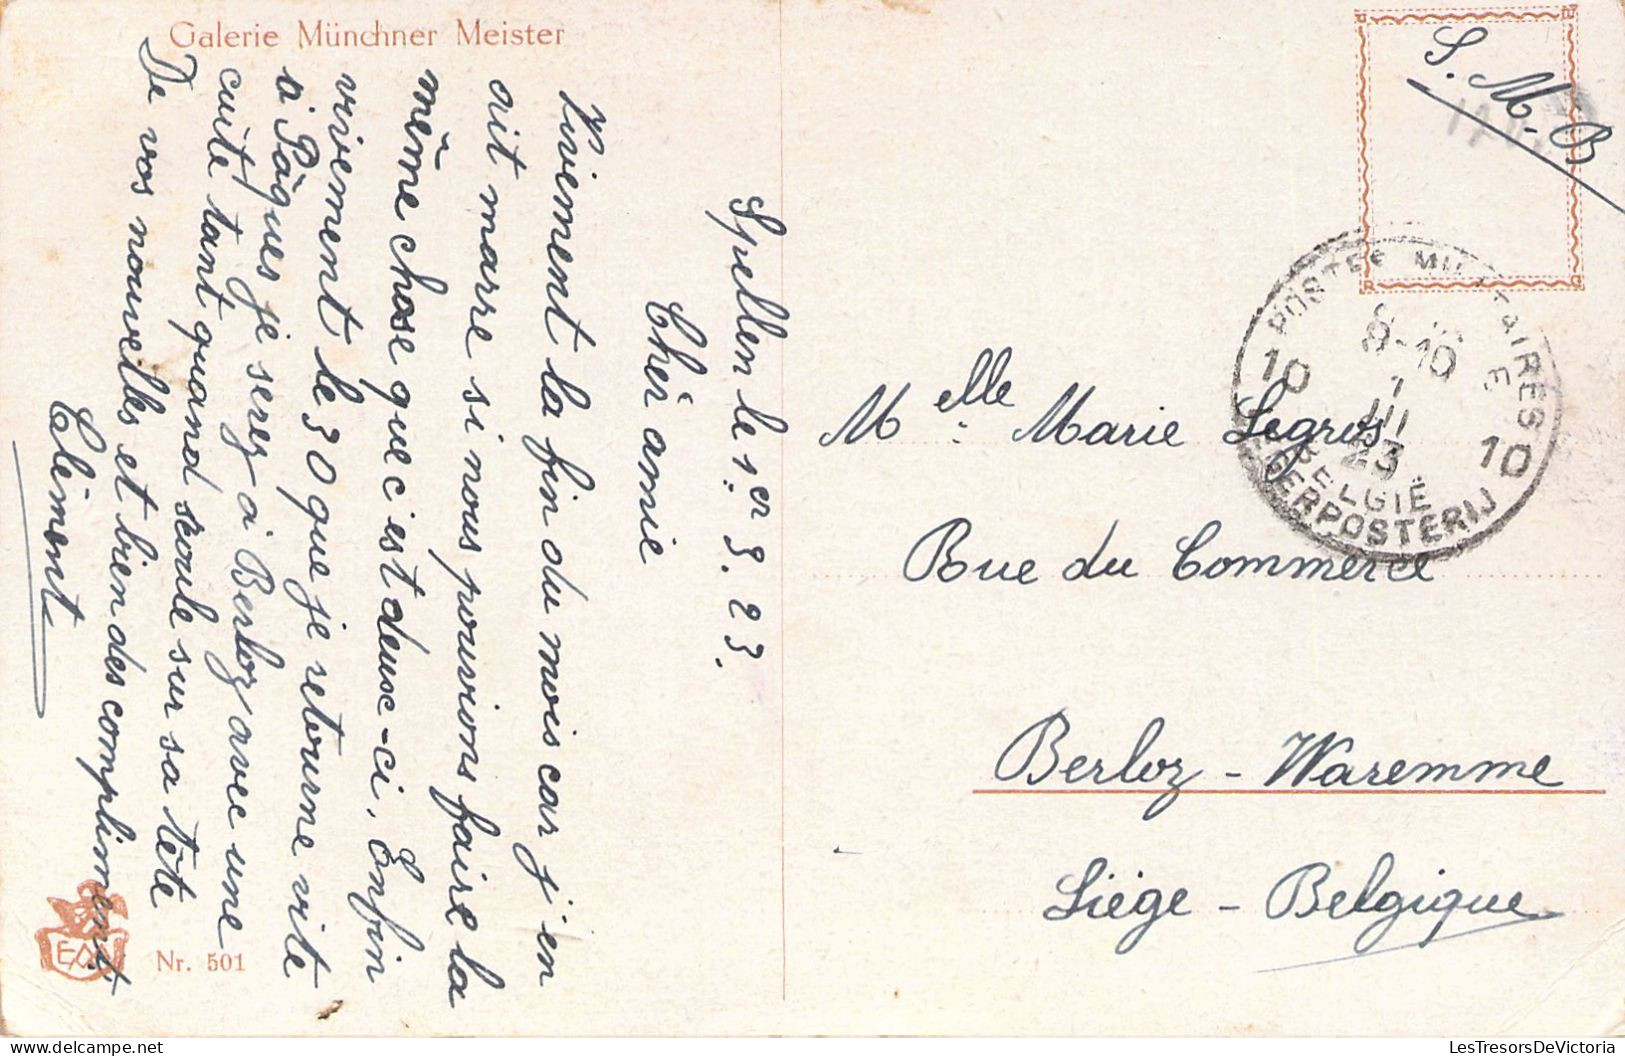 Galerie Münchner Meister
Spellen le 1er 3. 23.
Chèr amie
Vivement la fin du mois car j'en
ait marre si nous pouvions faire la
même chose que c'est deux-ci. Enfin
vivement le 30 que je retourne vite
à Pâques je serez à Berloz avec une
cuite tant quand seoule sur sa tête
De vos nouvelles et bien des compliment
Clément
Nr. 501
S. M. B
POSTES MILITAIRES
BELGIË
LEGERPOSTERIJ
10 10
9-10
1
III
23
Melle Marie Legros
Rue du Commerce
Berloz - Waremme
Liège - Belgique
LesTresorsDeVictoria